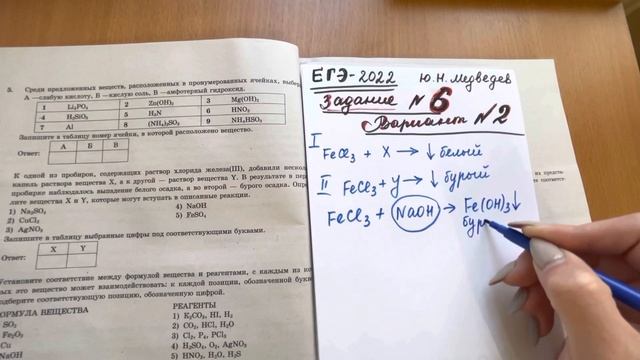 5. Среди предложенных веществ, расположенных в пронумерованных ячейках,
А — слабую кислоту, Б — кислую соль, В — амфотерный гидроксид.
1 Li₃PO₄ 2 Zn(OH)₂ 3 Mg(OH)₂
4 H₂SiO₃ 5 H₃N 6 HNO₃
7 Al 8 (NH₄)₂SO₄ 9 NH₄HSO₃
Запишите в таблицу номер ячейки, в которой расположено вещество.
Ответ:
А Б В
К одной из пробирок, содержащих раствор хлорида железа(III), добавили
капель раствора вещества X, а к другой — раствор вещества Y. В результате в
пробирке наблюдалось выпадение белого осадка, а во второй — бурого осадка.
лите вещества X и Y, которые могут вступать в описанные реакции.
1) Na₂SO₄ 4) NaOH
2) CuCl₂ 5) FeSO₄
3) AgNO₃
Запишите в таблицу выбранные цифры под соответствующими буквами.
Ответ:
X Y
Установите соответствие между формулой вещества и реагентами, с каждым из
ых это вещество может взаимодействовать: к каждой позиции, обозначенной
подберите соответствующую позицию, обозначенную цифрой.
ФОРМУЛА ВЕЩЕСТВА РЕАГЕНТЫ
SO₂ 1) K₂CO₃, HI, H₂
Fe₂O₃ 2) CO₂, HCl, H₂O
Cu 3) Cl₂, P₄, PCl₃
NaOH 4) H₂SO₄, O₂, AgNO₃
5) HNO₃, H₂O, H₂S
ЕГЭ-2022 Ю.Н. Медведев
Задание №6
Вариант №2
I FeCl₃ + X → ↓ белый
II FeCl₃ + y → ↓ бурый
FeCl₃ + NaOH → Fe(OH)₃↓
бур